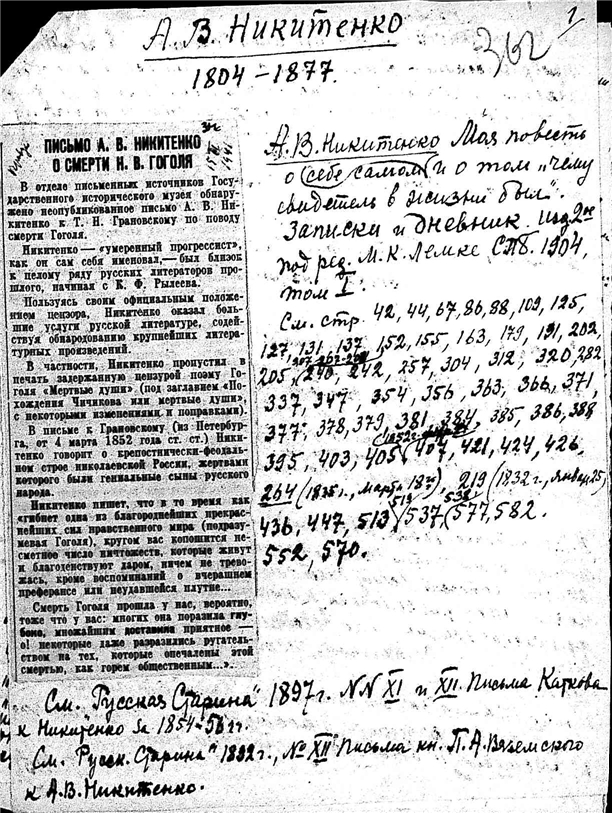 1
А. В. Никитенко
362
1804-1877.
ПИСЬМО А. В. НИКИТЕНКО
О СМЕРТИ Н. В. ГОГОЛЯ
В отделе письменных источников Госу-
дарственного исторического музея обнару-
жено неопубликованное письмо А. В. Ни-
китенко к Т. Н. Грановскому по поводу
смерти Гоголя.
Никитенко — «умеренный прогрессист»,
как он сам себя именовал, — был близок
к целому ряду русских литераторов про-
шлого, начиная с К. Ф. Рылеева.
Пользуясь своим официальным положе-
нием цензора, Никитенко оказал боль-
шие услуги русской литературе, содей-
ствуя обнародованию крупнейших литера-
турных произведений.
В частности, Никитенко пропустил в
печать задержанную цензурой поэму Го-
голя «Мертвые души» (под заглавием «По-
хождения Чичикова или мертвые души»,
с некоторыми изменениями и поправками).
В письме к Грановскому (из Петербур-
га, от 4 марта 1852 года ст. ст.) Ники-
тенко говорит о крепостнически-феодаль-
ном строе николаевской России, жертвами
которого были гениальные сыны русского
народа.
Никитенко пишет, что в то время как
«гибнет одна из благороднейших прекрас-
нейших сил нравственного мира (подразу-
мевая Гоголя), кругом вас копошится не-
сметное число ничтожеств, которые живут
и благоденствуют даром, ничем не трево-
жась, кроме воспоминаний о вчерашнем
преферансе или неудавшейся плутне...
Смерть Гоголя прошла у нас, вероятно,
тоже что у вас: многих она поразила глу-
боко, множайшим доставила приятное —
о! некоторые даже разразились ругатель-
ством на тех, которые опечалены этой
смертью, как горем общественным...».
А. В. Никитенко Моя повесть
о себе самом и о том "чему
свидетель в жизни был".
Записки и дневник. Изд. 2ое
под ред. М. К. Лемке СПб. 1904,
том I.
См. стр. 42, 44, 67, 86, 88, 109, 125,
127, 131, 137, 152, 155, 163, 179, 191, 202,
205, 240, 242, 257, 304, 312, 320, 282
337, 347, 354, 356, 363, 366, 371,
377, 378, 379, 381, 384, 385, 386, 388
395, 403, 405, 407, 421, 424, 426,
264 (1835г., марта), 219 (1832г., январь 25),
519 538
436, 447, 513, 537, 577, 582.
552, 570.
См. "Русская Старина" 1897г. NN XI и XII. Письма Каткова
к Никитенко за 1854-56гг.
См. "Русск. Старина" 1892г., № XII Письма кн. П. А. Вяземского
к А. В. Никитенко.